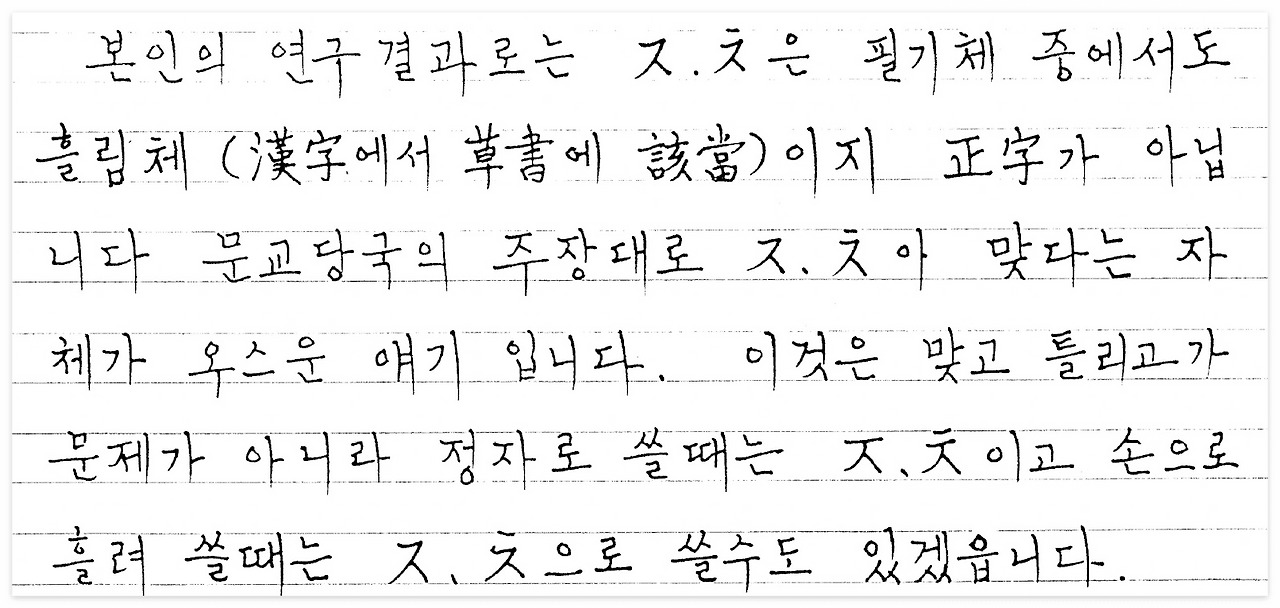 본인의 연구결과로는 ㅈ.ㅊ은 필기체 중에서도
흘림체 (漢字에서 草書에 該當)이지 正字가 아닙
니다 문교당국의 주장대로 ㅈ.ㅊ아 맞다는 자
체가 우스운 얘기 입니다. 이것은 맞고 틀리고가
문제가 아니라 정자로 쓸때는 ㅈ、ㅊ이고 손으로
흘려 쓸때는 ㅈ、ㅊ으로 쓸수도 있겠읍니다.